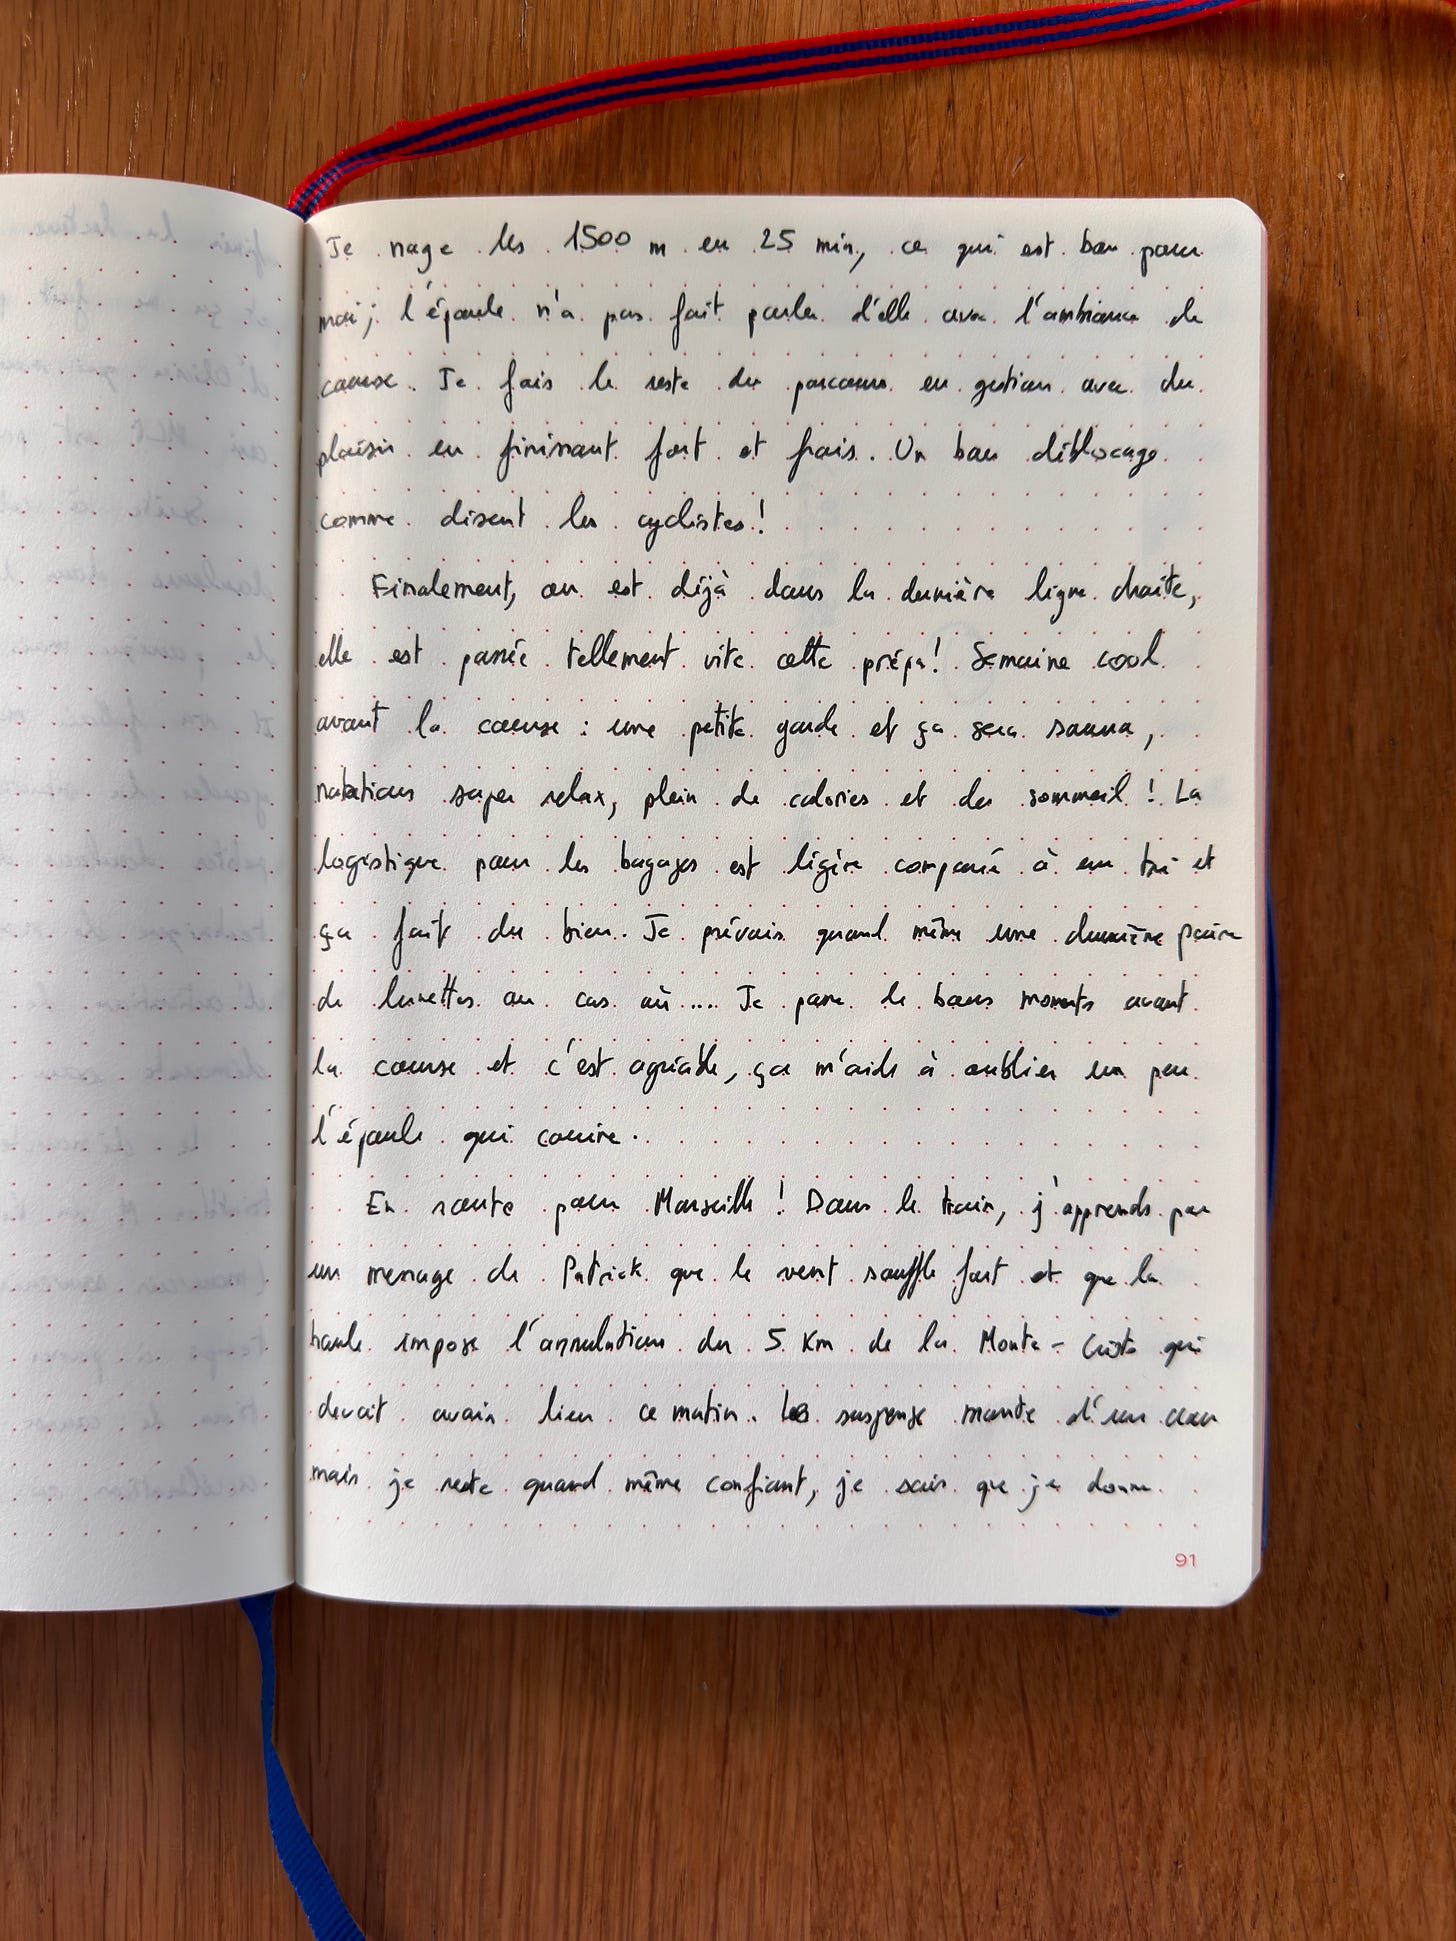 Je nage les 1500 m en 25 min, ce qui est bon pour
moi ; l'épaule n'a pas fait parler d'elle avec l'ambiance de
course. Je fais le reste du parcours en gestion avec du
plaisir en finissant fort et frais. Un bon déblocage
comme disent les cyclistes !
Finalement, on est déjà dans la dernière ligne droite,
elle est passée tellement vite cette prépa ! Semaine cool
avant la course : une petite garde et ça sera sauna,
natations super relax, plein de calories et du sommeil ! La
logistique pour les bagages est légère comparé à un tri et
ça fait du bien. Je prévois quand même une deuxième paire
de lunettes au cas où .... Je passe de bons moments avant
la course et c'est agréable, ça m'aide à oublier un peu
l'épaule qui couine.
En route pour Marseille ! Dans le train, j'apprends par
un message de Patrick que le vent souffle fort et que la
houle impose l'annulation du 5 Km de la Monte-Cristo qui
devait avoir lieu ce matin. Le suspense monte d'un cran
mais je reste quand même confiant, je sais que je donne
91